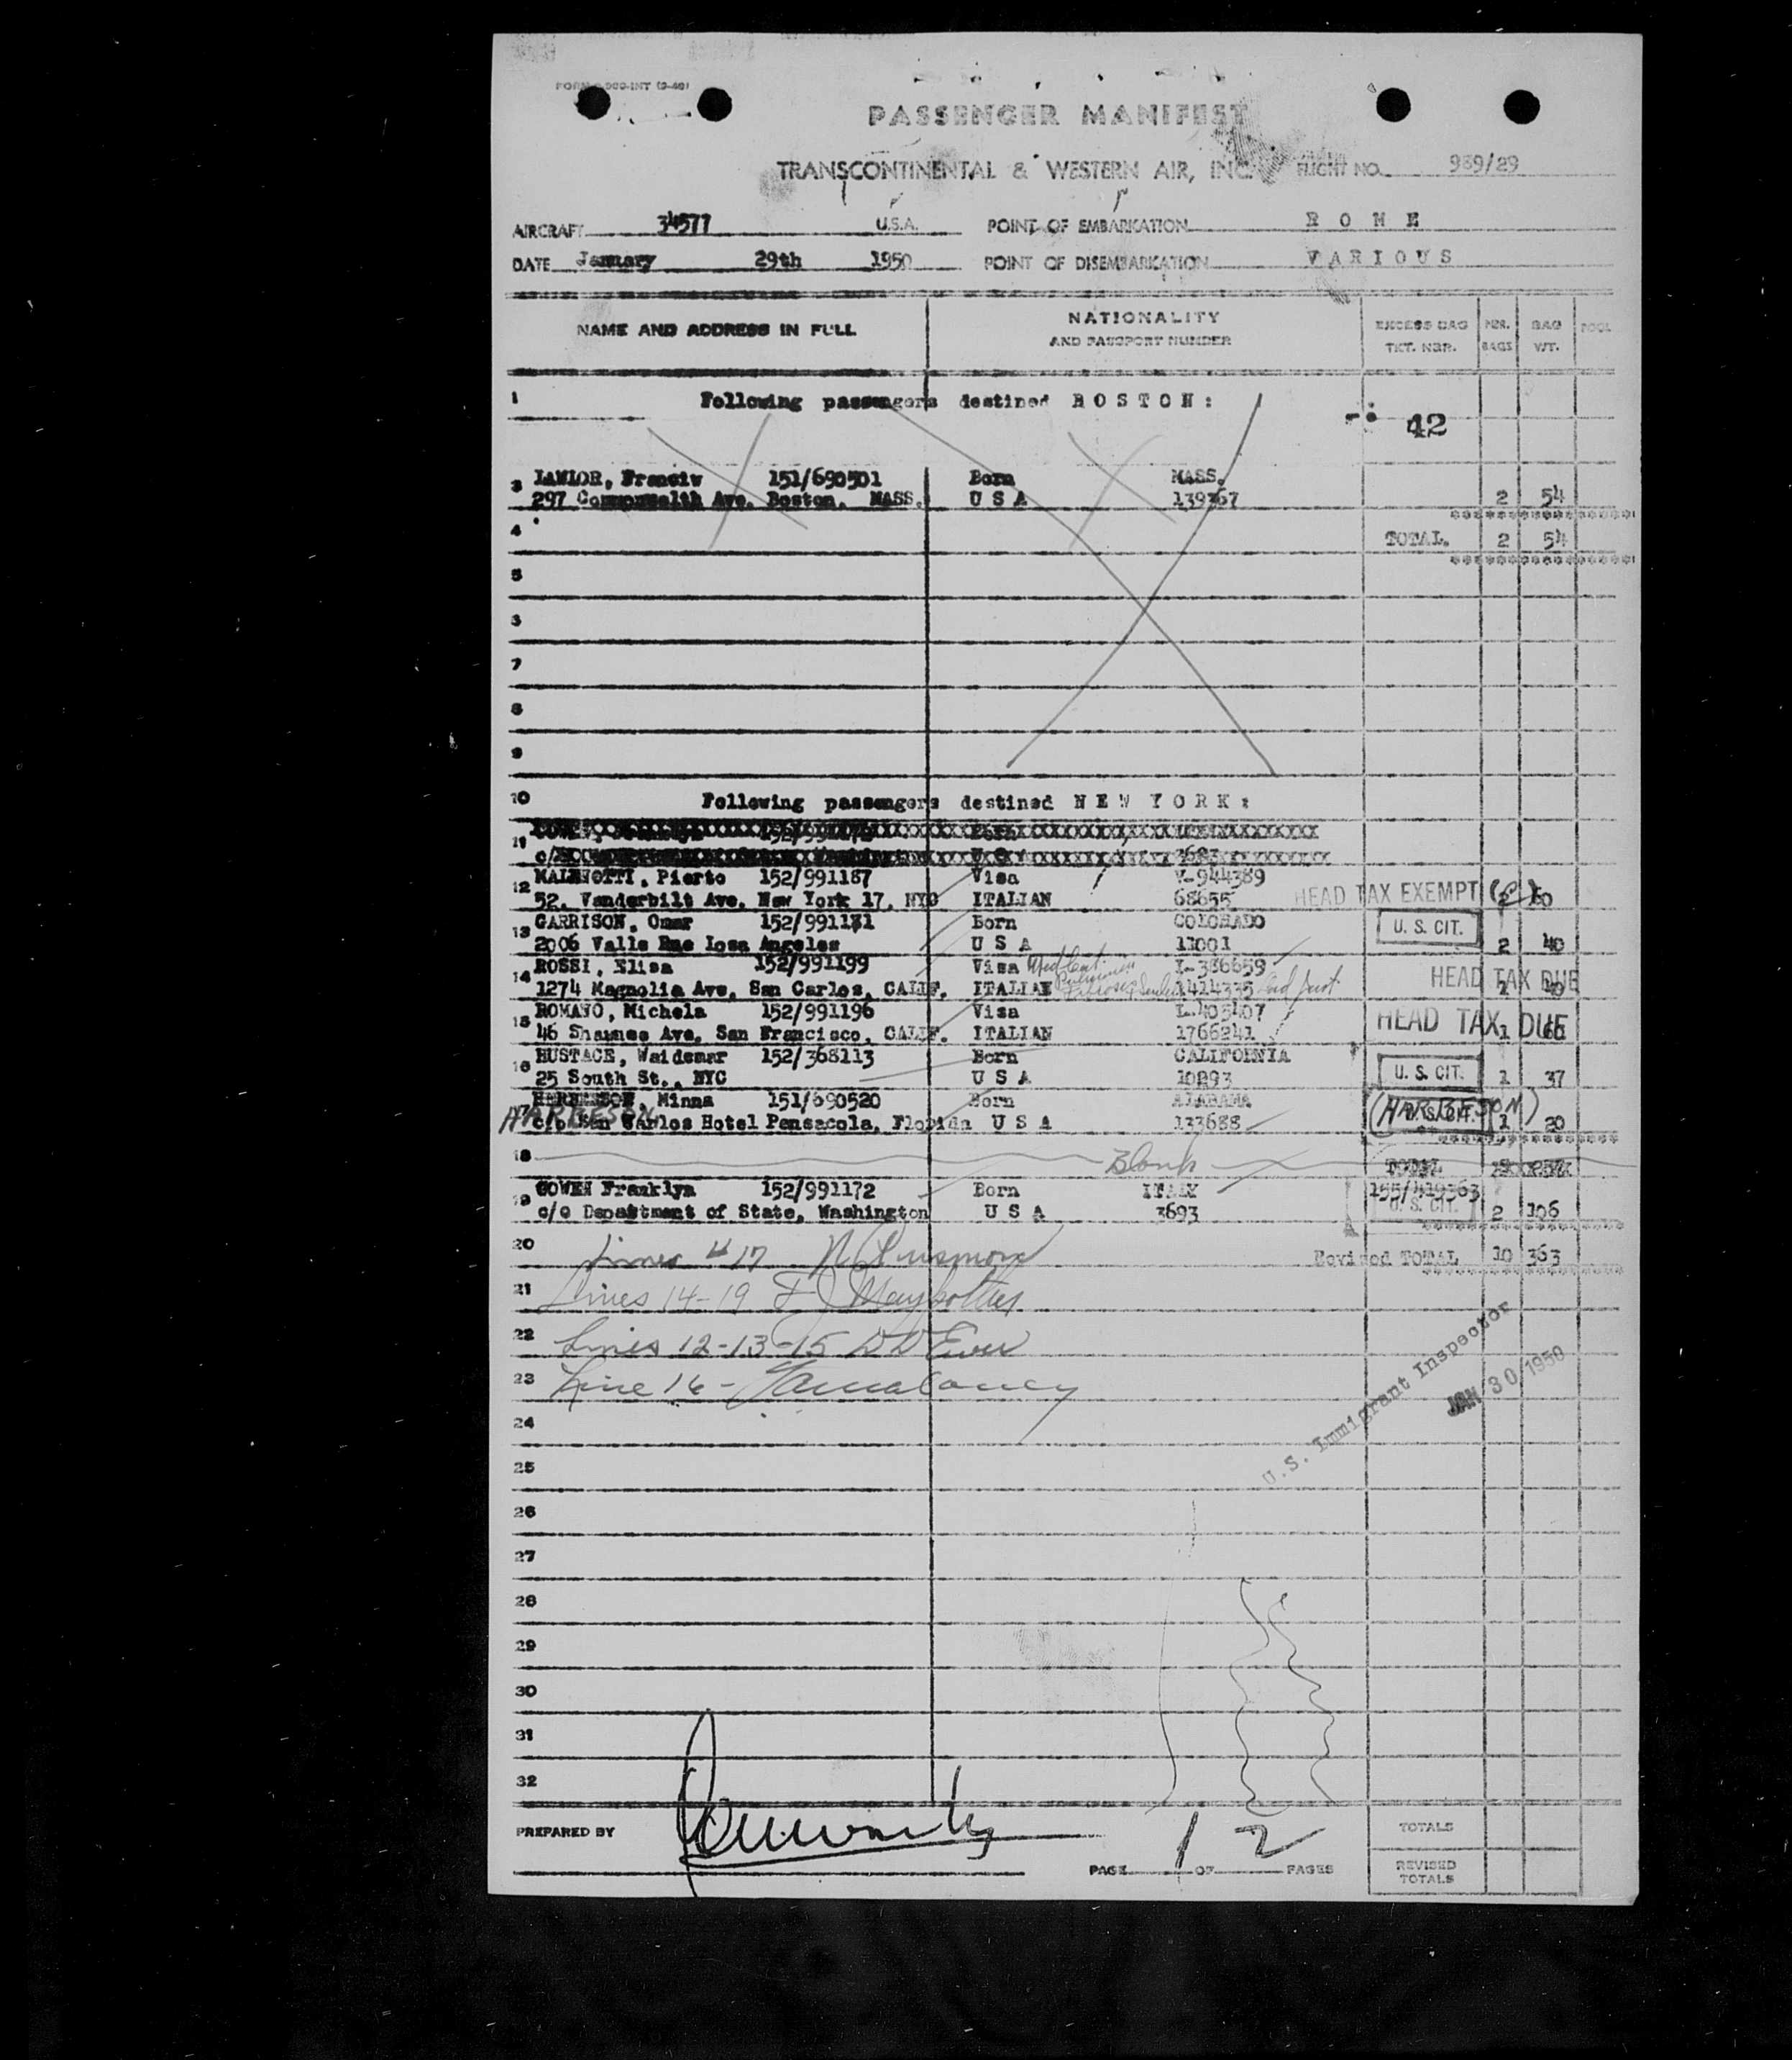 PASSENGER MANIFEST
TRANSCONTINENTAL & WESTERN AIR, INC. FLIGHT NO. 989/29
AIRCRAFT 34577 U.S.A. POINT OF EMBARKATION R O M E
DATE January 29th 1950 POINT OF DISEMBARKATION V A R I O U S
NAME AND ADDRESS IN FULL NATIONALITY AND PASSPORT NUMBER EXCESS BAG TKT. NBR. NBR. BAGS BAG WT. POOL
1 Following passengers destined B O S T O N :
42
3 LAWLOR, Franciw 151/690501 Born MASS.
297 Commonwealth Ave. Boston. MASS. U S A 139367 2 54
4 TOTAL. 2 54
5
7
8
9
10 Following passengers destined N E W Y O R K :
11
12 Pierto 152/991187 Visa V-944389
52. Vanderbilt Ave. New York 17. NYC ITALIAN 68655 HEAD TAX EXEMPT
13 GARRISON, Omar 152/991181 Born COLORADO
2006 Valle Rue Losa Angeles U S A 11001 U. S. CIT. 2 40
14 ROSSI, Elisa 152/991199 Visa I-386659
1274 Magnolia Ave. San Carlos, CALIF. ITALIAN 1414335 HEAD TAX DUE
15 ROMANO, Michela 152/991196 Visa I-405407
46 Shawnee Ave, San Francisco, CALIF. ITALIAN 1766241 HEAD TAX DUE 1 60
16 EUSTACE, Waidemar 152/368113 Born CALIFORNIA
25 South St., NYC U S A 10293 U. S. CIT. 1 37
Minna 151/690520 Born ALABAMA
HARBESON c/o San Carlos Hotel Pensacola, Florida U S A 133688 (HARBESON) 1 20
18 Blank TOTAL
19 COWEN Franklyn 152/991172 Born ITALY
c/o Department of State, Washington U S A 3693 U. S. CIT. 2 106
20 Revised TOTAL 10 363
21 Lines 14-19
22 Lines 12-13-15
23 Line 16 -
U.S. Immigrant Inspector
JAN 30 1950
24
25
26
27
28
29
30
31
32
PREPARED BY TOTALS
PAGE 1 OF 2 PAGES REVISED TOTALS